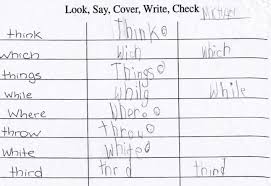 Look, Say, Cover, Write, Check
think think
which Wich which
things Things
while while While
where Where
throw throw
white white
third thrd third